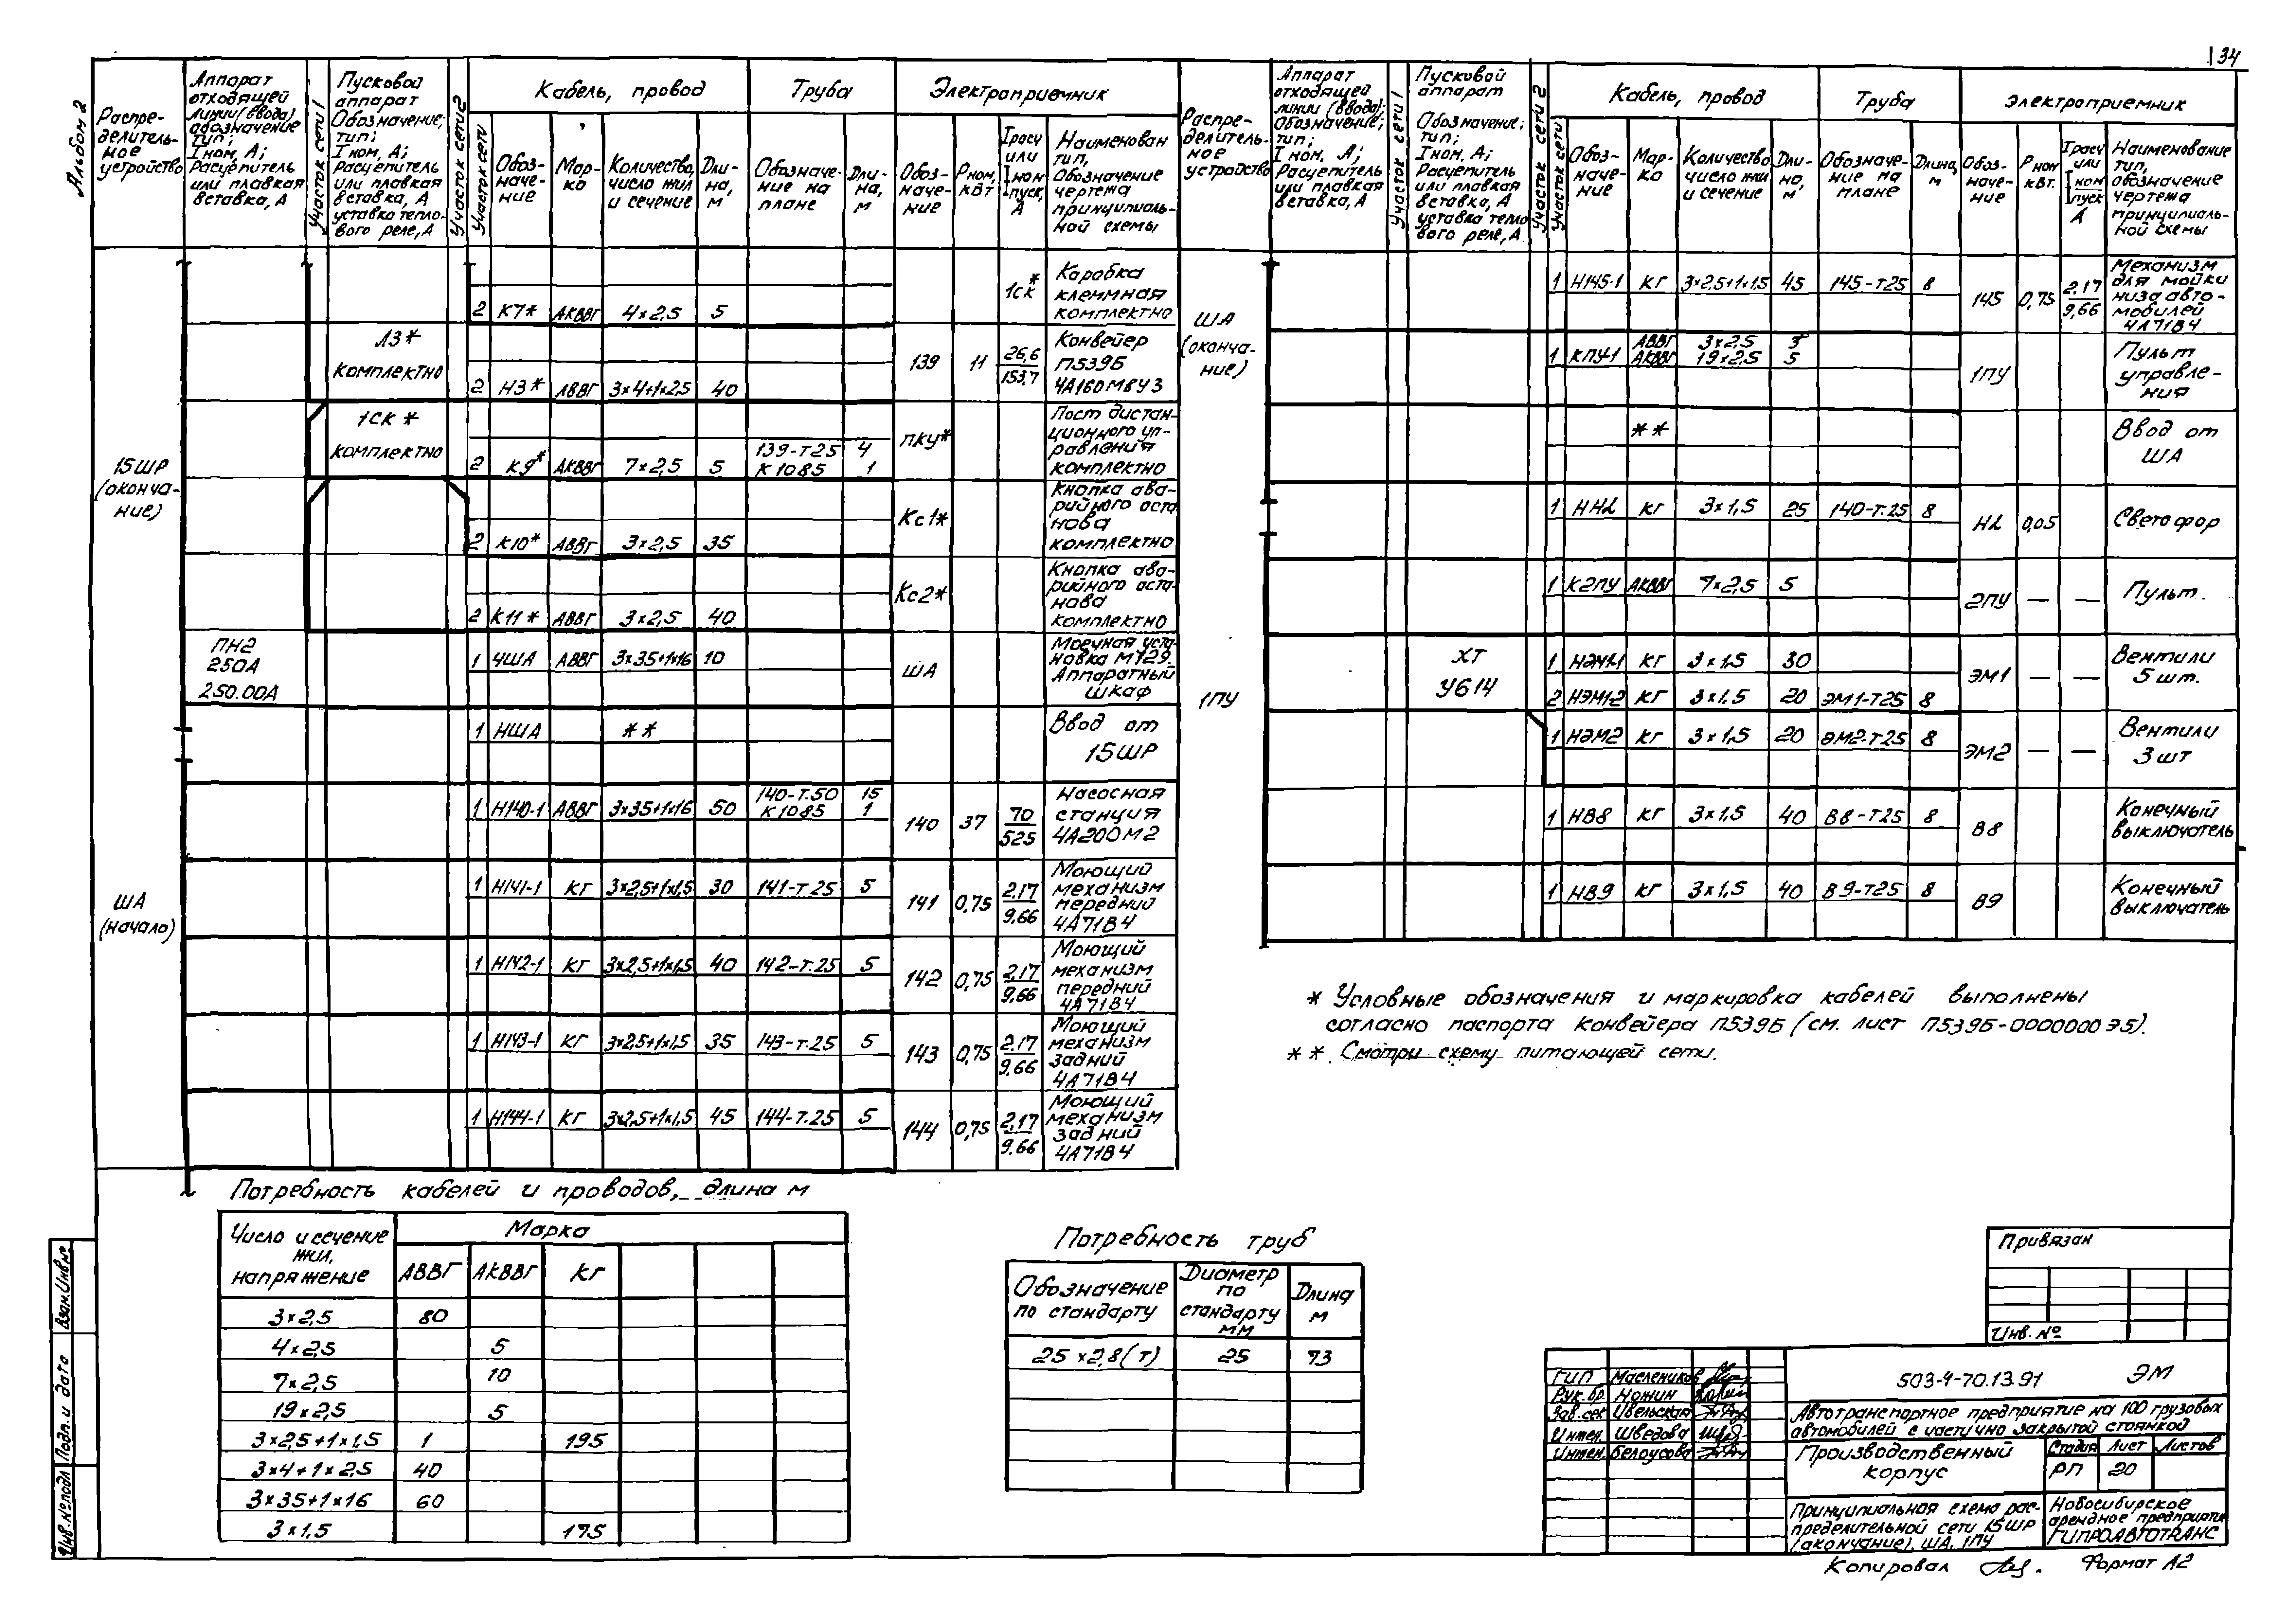 34
Альбом 2
Распре-
делитель-
ное
устройство
Аппарат
отходящей
линии (ввода)
обозначение
тип;
Iном, А;
Расцепитель
или плавкая
вставка, А
Участок сети 1
Пусковой
аппарат
Обозначение;
тип;
Iном, А;
Расцепитель
или плавкая
вставка, А
уставка тепло-
вого реле, А
Участок сети 2
Участок сети
Кабель, провод
Обоз-
наче-
ние
Мар-
ка
Количество,
число жил
и сечение
Дли-
на,
м
Труба
Обозначе-
ние на
плане
Дли-
на,
м
Электроприемник
Обоз-
наче-
ние
Рном,
кВт
Iрасч
или
Iном
Iпуск,
А
Наименован
тип,
Обозначение
чертежа
принципиаль-
ной схемы
15ШР
(оконча-
ние)
2 К7* АКВВГ 4×2,5 5
1СК*
Коробка
клеммная
комплектно
Л3*
комплектно
2 Н3* АВВГ 3×4+1×2,5 40
139 11 26,6 153,7
Конвейер
П539Б
4А160М8У3
1СК *
комплектно
2 К9* АКВВГ 7×2,5 5
139-Т25 4
К1085 1
ПКУ*
Пост дистан-
ционного уп-
равления
комплектно
2 К10* АВВГ 3×2,5 35
Кс1*
Кнопка ава-
рийного оста
нова
комплектно
2 К11* АВВГ 3×2,5 40
Кс2*
Кнопка ава-
рийного оста-
нова
комплектно
ПН2
250А
250.00А
1 ЧША АВВГ 3×35+1×16 10
ША
Моечная уста
новка М129.
Аппаратный
шкаф
1 НША **
Ввод от
15ШР
ША
(начало)
1 Н140-1 АВВГ 3×35+1×16 50
140-Т.50 15
К1085 1
140 37 70 525
Насосная
станция
4А200М2
1 Н141-1 КГ 3×2,5+1×1,5 30 141-Т25 5
141 0,75 2,17 9,66
Моющий
механизм
передний
4А71В4
1 Н142-1 КГ 3×2,5+1×1,5 40 142-Т.25 5
142 0,75 2,17 9,66
Моющий
механизм
передний
4А71В4
1 Н143-1 КГ 3×2,5+1×1,5 35 143-Т.25 5
143 0,75 2,17 9,66
Моющий
механизм
задний
4А71В4
1 Н144-1 КГ 3×2,5+1×1,5 45 144-Т.25 5
144 0,75 2,17 9.66
Моющий
механизм
задний
4А71В4
Распре-
делитель-
ное
устройство
Аппарат
отходящей
линии (ввода);
Обозначение;
тип;
Iном, А;
Расцепитель
или плавкая
вставка, А
Участок сети 1
Пусковой
аппарат
Обозначение;
тип;
Iном, А;
Расцепитель
или плавкая
вставка, А
уставка тепло
вого реле, А
Участок сети 2
Участок сети
Кабель, провод
Обоз-
наче-
ние
Мар-
ка
Количество
число жил
и сечение
Дли-
на,
м
Труба
Обозначе-
ние на
плане
Длина,
м
Электроприемник
Обоз-
наче-
ние
Рном
кВт.
Iрасч
или
Iном
Iпуск
А
Наименование
тип,
обозначение
чертежа
принципиаль-
ной схемы
ША
(оконча-
ние)
1 Н145-1 КГ 3×2,5+1×1,5 45 145-Т25 8
145 0,75 2,17 9,66
Механизм
для мойки
низа авто-
мобилей
4А71В4
АВВГ 3×2,5 3
1 КПУ-1 АКВВГ 19×2,5 5
1ПУ
Пульт
управле-
ния
**
Ввод от
ША
1ПУ
1 НН2 КГ 3×1,5 25 140-Т.25 8
Н2 0,05
Светофор
1 К2ПУ АКВВГ 7×2,5 5
2ПУ — —
Пульт.
ХТ
У614
1 НЭМ1-1 КГ 3×1,5 30
2 НЭМ1-2 КГ 3×1,5 20 ЭМ1-Т25 8
ЭМ1 — —
Вентили
5 шт.
1 НЭМ2 КГ 3×1,5 20 ЭМ2-Т25 8
ЭМ2 — —
Вентили
3 шт
1 НВ8 КГ 3×1,5 40 В8-Т25 8
В8
Конечный
выключатель
1 НВ9 КГ 3×1,5 40 В9-Т25 8
В9
Конечный
выключатель
* Условные обозначения и маркировка кабелей выполнены
согласно паспорта конвейера П539Б (см. лист П539Б-0000000 Э5).
**. Смотри схему питающей сети.
Потребность кабелей и проводов, длина м
Число и сечение
жил,
напряжение
Марка
АВВГ АКВВГ КГ
3×2,5 80
4×2,5 5
7×2,5 10
19×2,5 5
3×2,5+1×1,5 1 195
3×4+1×2,5 40
3×35+1×16 60
3×1,5 175
Потребность труб
Обозначение
по стандарту
Диаметр
по
стандарту
мм
Длина
м
25×2,8(т) 25 73
Привязан
Инв. №
ГИП Маслеников
Рук. бр. Ножин
Зав. сек Цвельская
Интен. Шведова
Интен. Белоусова
503-4-70.13.91 ЭМ
Автотранспортное предприятие на 100 грузовых
автомобилей с частично закрытой стоянкой
Производственный
корпус
Стадия Лист Листов
РП 20
Принципиальная схема рас-
пределительной сети 15ШР
(окончание), ША, 1ПУ
Новосибирское
арендное предприяти
ГИПРОАВТОТРАНС
Копировал
Формат А2
Взам. Инв. №
Подп. и дата
Инв. № подл